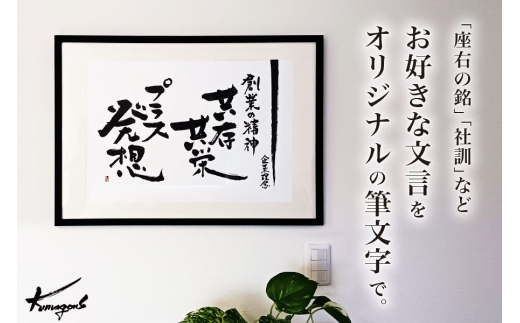 「座右の銘」「社訓」など
お好きな文言を
オリジナルの筆文字で。
企業理念
創業の精神
共存
共栄
プラス
発想